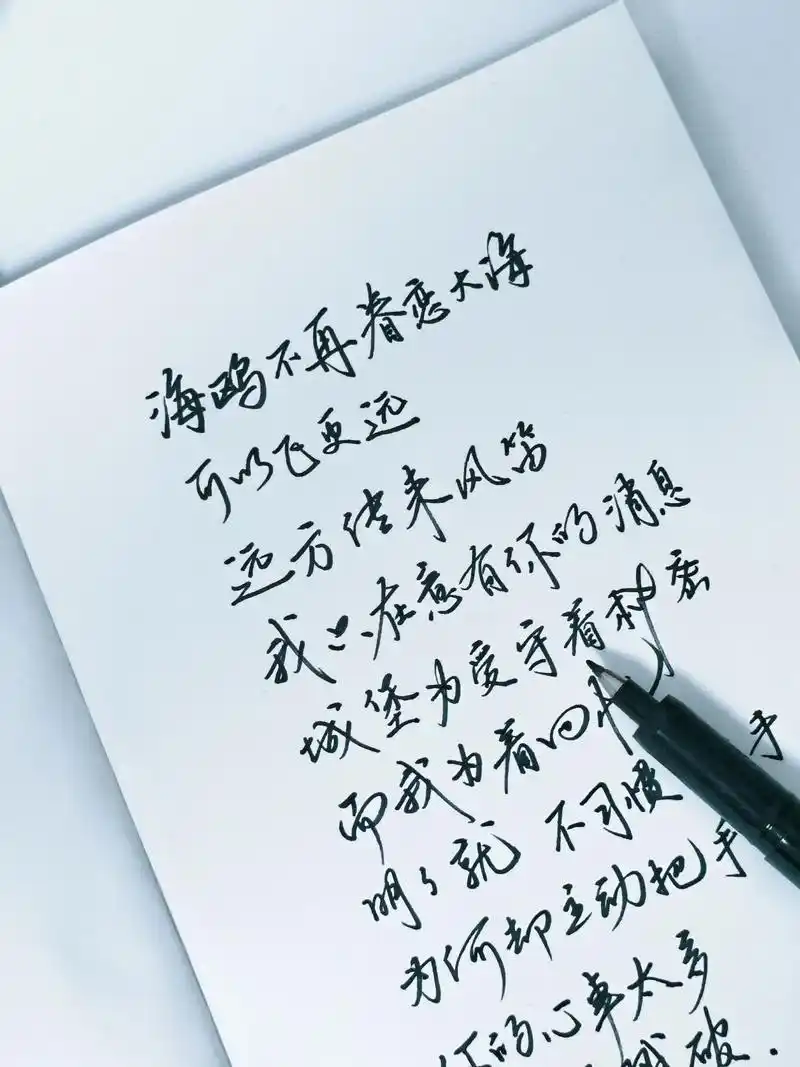 海鸥不再眷恋大海
可以飞更远
远方传来风笛
我只在意有你的消息
城堡为爱守着秘密
而我为着回忆
明々就 不习惯 手
为何却主动把手
你的心事太多
破.